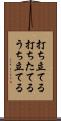 打ち立てる
打ちたてる
うち立てる